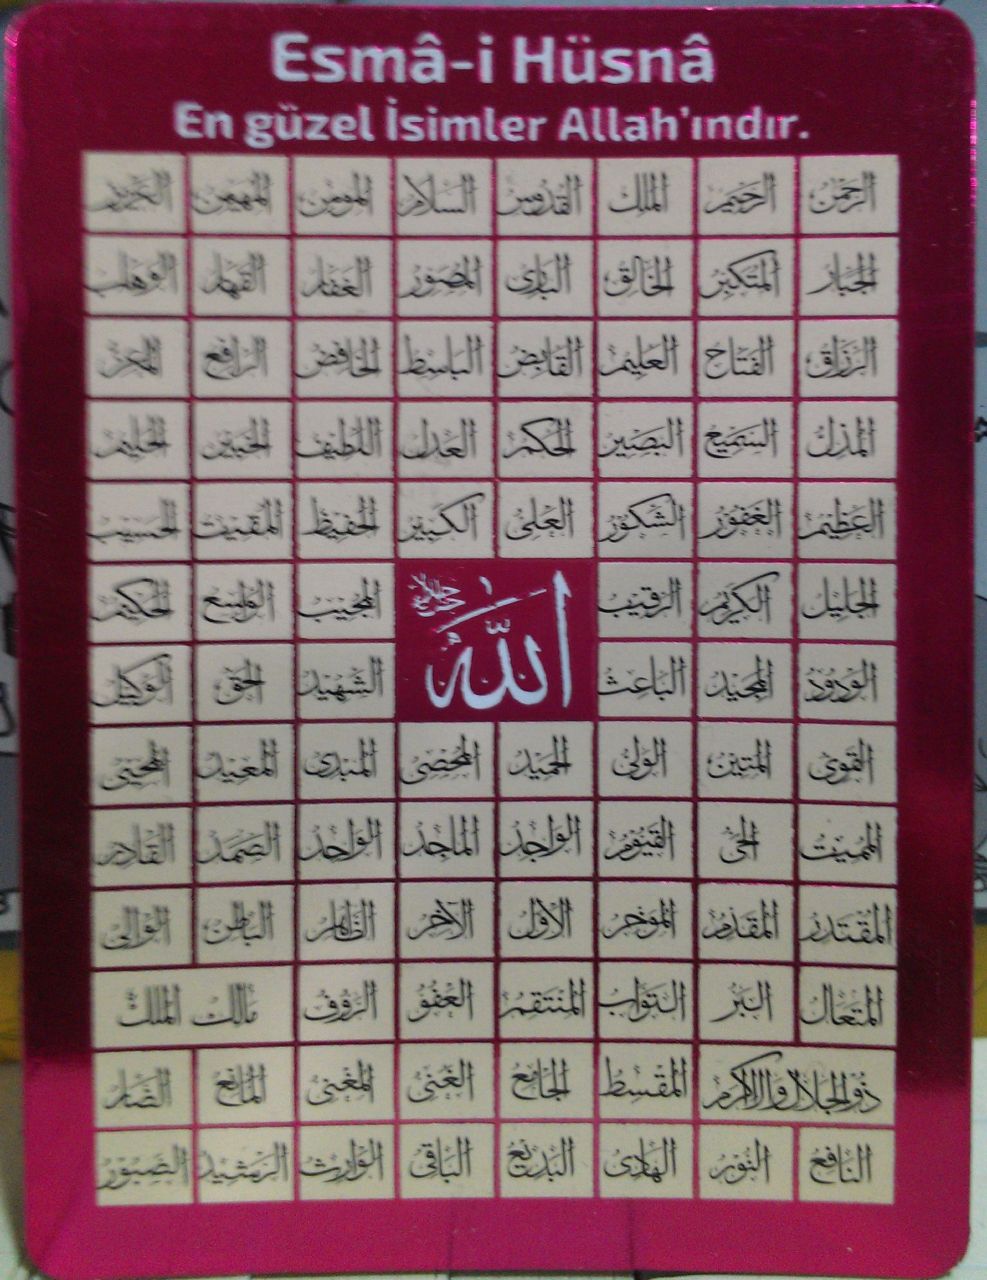 Esmâ-i Hüsnâ
En güzel İsimler Allah'ındır.
الرحمن الرحيم الملك القدوس السلام المؤمن المهيمن العزيز
الجبار المتكبر الخالق البارئ المصور الغفار القهار الوهاب
الرزاق الفتاح العليم القابض الباسط الخافض الرافع المعز
المذل السميع البصير الحكم العدل اللطيف الخبير الحليم
العظيم الغفور الشكور العلى الكبير الحفيظ المقيت الحسيب
الجليل الكريم الرقيب المجيب الواسع الحكيم
الله جل جلاله
الودود المجيد الباعث الشهيد الحق الوكيل
القوى المتين الولى الحميد المحصى المبدئ المعيد المحيى
المميت الحى القيوم الواجد الماجد الواحد الصمد القادر
المقتدر المقدم المؤخر الاول الآخر الظاهر الباطن الوالى
المتعال البر التواب المنتقم العفو الرؤوف مالك الملك
ذو الجلال والاكرام المقسط الجامع الغنى المغنى المانع الضار
النافع النور الهادى البديع الباقى الوارث الرشيد الصبور